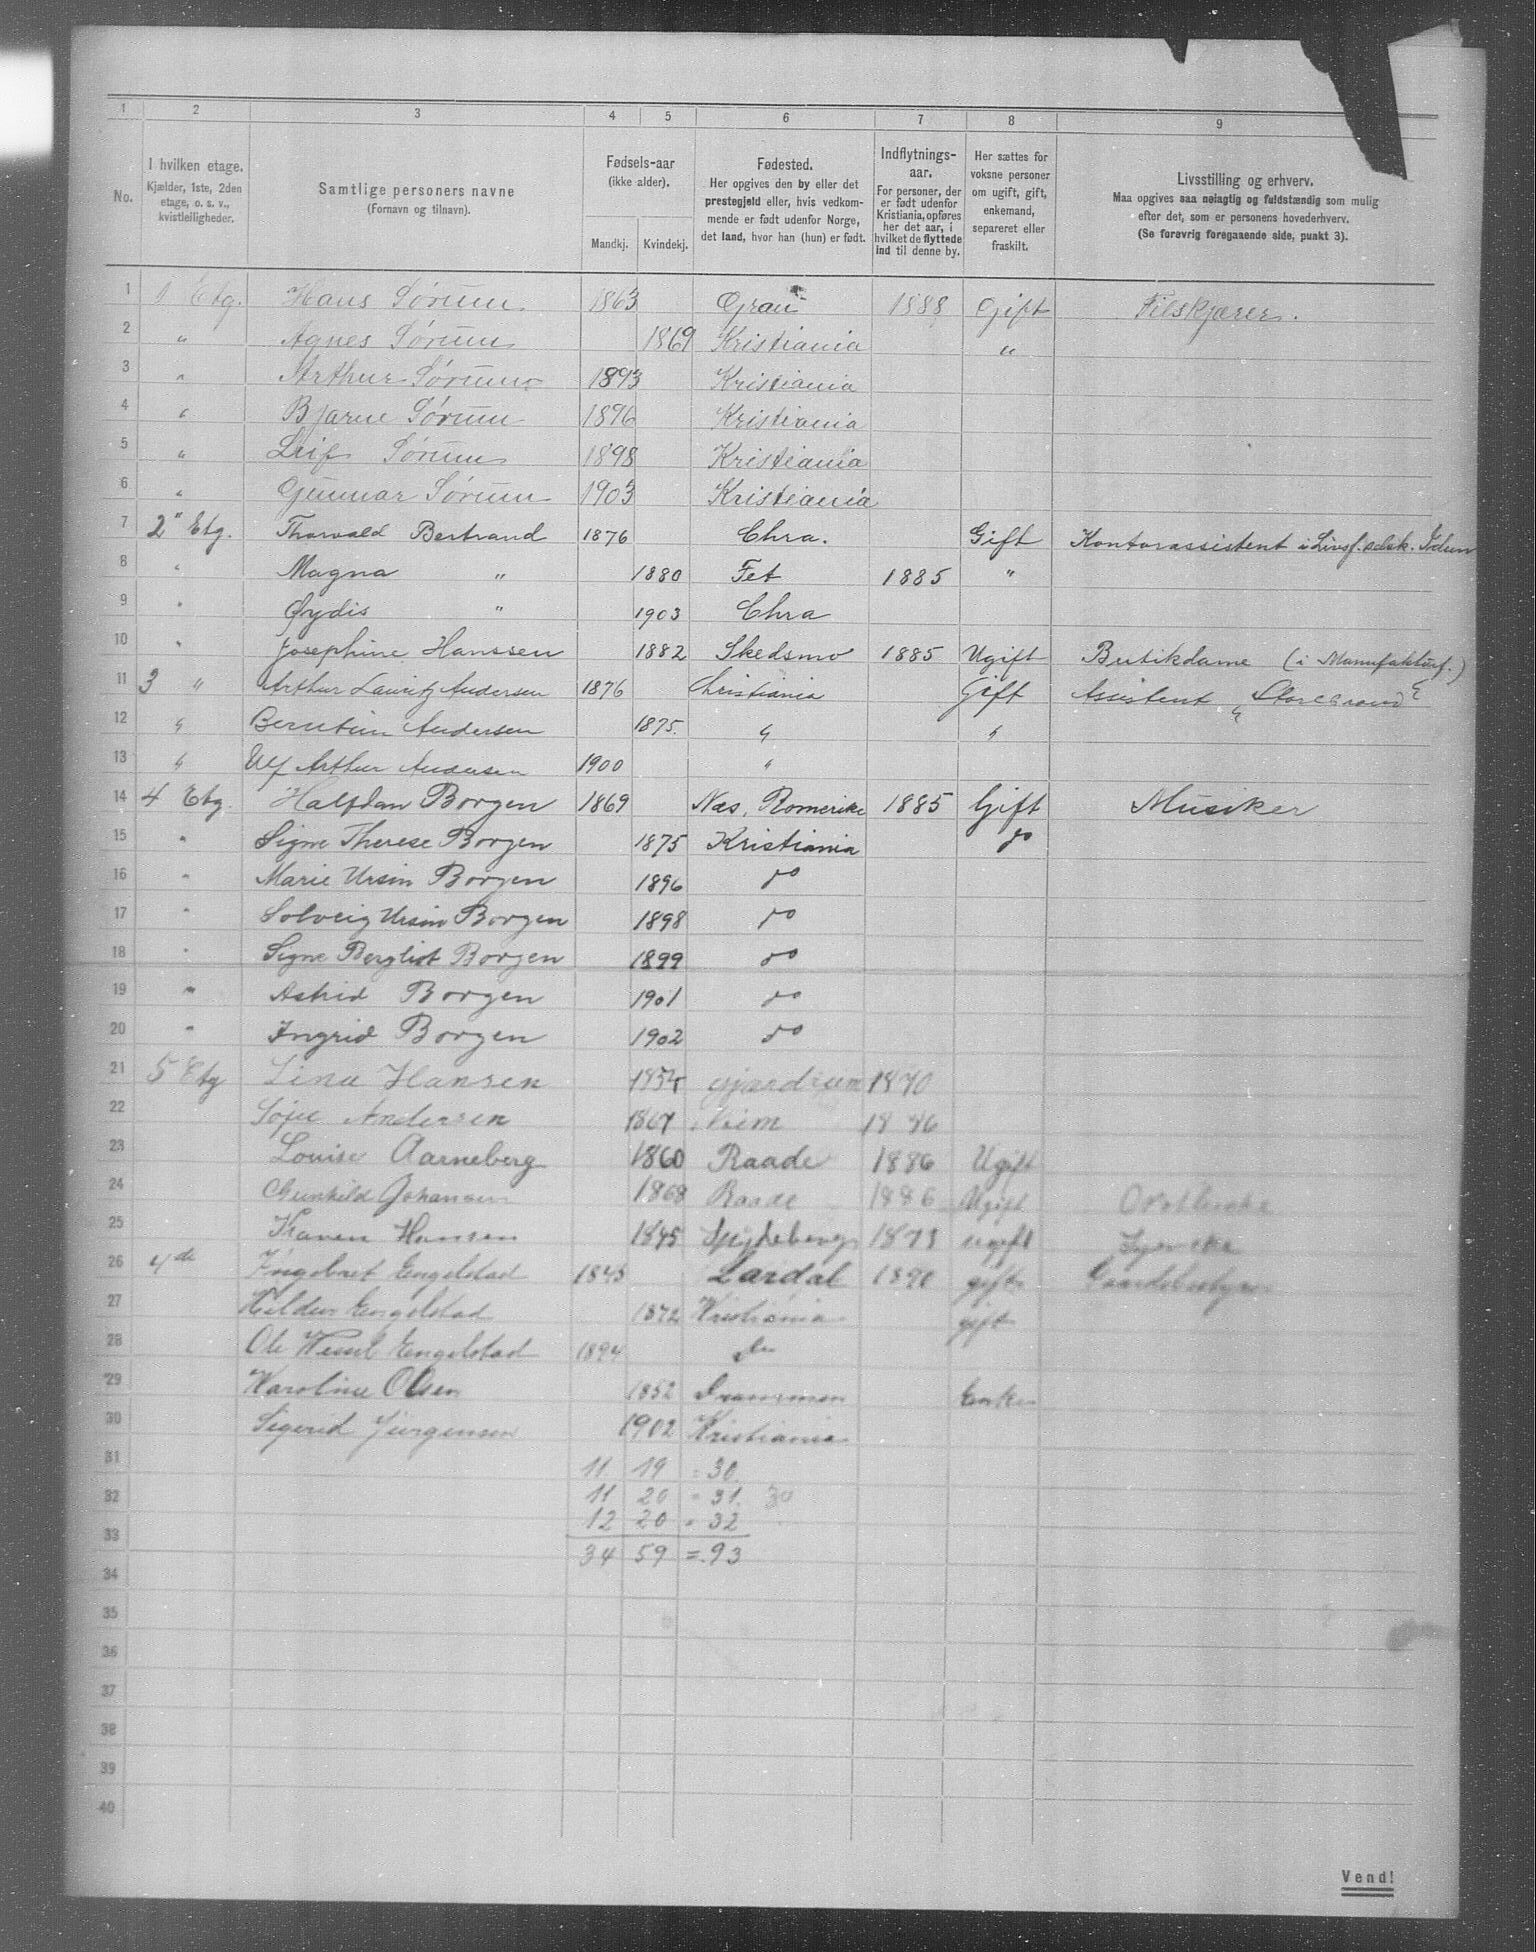 1 2 3 4 5 6 7 8 9
No.
I hvilken etage.
Kjælder, 1ste, 2den
etage, o. s. v.,
kvistleiligheder.
Samtlige personers navne
(Fornavn og tilnavn).
Fødsels-aar
(ikke alder).
Mandkj. Kvindekj.
Fødested.
Her opgives den by eller det
prestegjeld eller, hvis vedkom-
mende er født udenfor Norge,
det land, hvor han (hun) er født.
Indflytnings-
aar.
For personer, der
er født udenfor
Kristiania, opføres
her det aar, i
hvilket de flyttede
ind til denne by.
Her sættes for
voksne personer
om ugift, gift,
enkemand,
separeret eller
fraskilt.
Livsstilling og erhverv.
Maa opgives saa nøiagtig og fuldstændig som mulig
efter det, som er personens hovederhverv.
(Se forøvrig foregaaende side, punkt 3).
1 1 Etg. Hans Sørum 1863 Gran 1888 Gift Filskjærer.
2 " Agnes Sørum 1869 Kristiania "
3 " Arthur Sørum 1893 Kristiania
4 " Bjarne Sørum 1896 Kristiania
5 " Leif Sørum 1898 Kristiania
6 " Gunnar Sørum 1903 Kristiania
7 2" Etg. Thorvald Bertrand 1876 Chra. Gift Kontorassistent i Livsf.selsk. Idun
8 " Magna " 1880 Fet 1885 "
9 " Øydis " 1903 Chra
10 " Josephine Hanssen 1882 Skedsmo 1885 Ugift Butikdame (i Manufakturf.)
11 3 " Arthur Lauritz Andersen 1876 Christiania Gift Assistent " Storebrand "
12 " Andersen 1875. " "
13 " Ulf Arthur Andersen 1900 "
14 4 Etg. Halfdan Borgen 1869 Næs, Romerike 1885 Gift Musiker
15 " Signe Therese Borgen 1875 Kristiania do
16 " Marie Ursin Borgen 1896 do
17 " Solveig Ursin Borgen 1898 do
18 " Signe Bergliot Borgen 1899 do
19 " Astrid Borgen 1901 do
20 " Ingrid Borgen 1902 do
21 5 Etg Lina Hansen Gjerdrum
22 Andersen
23 Louise Aarneberg 1860 Raade 1886 Ugift
24 Gunhild Johansen 1868 Raade 1886 Ugift
25 Karen Hansen 1845 Spydeberg ugift
26 4de Engelstad Lardal 1890 gift Gaardsbestyrer
27 Engelstad 1872 Kristiania gift
28 Ole Wessel Engelstad 1894 do
29 Karoline Olsen 1852 Drammen Enke
30 Sigerid Jürgensen 1902 Kristiania
31 11 19 = 30
32 11 20 = 31. 30
12 20 = 32
33
34 59 = 93
34
35
36
37
38
39
40
Vend!